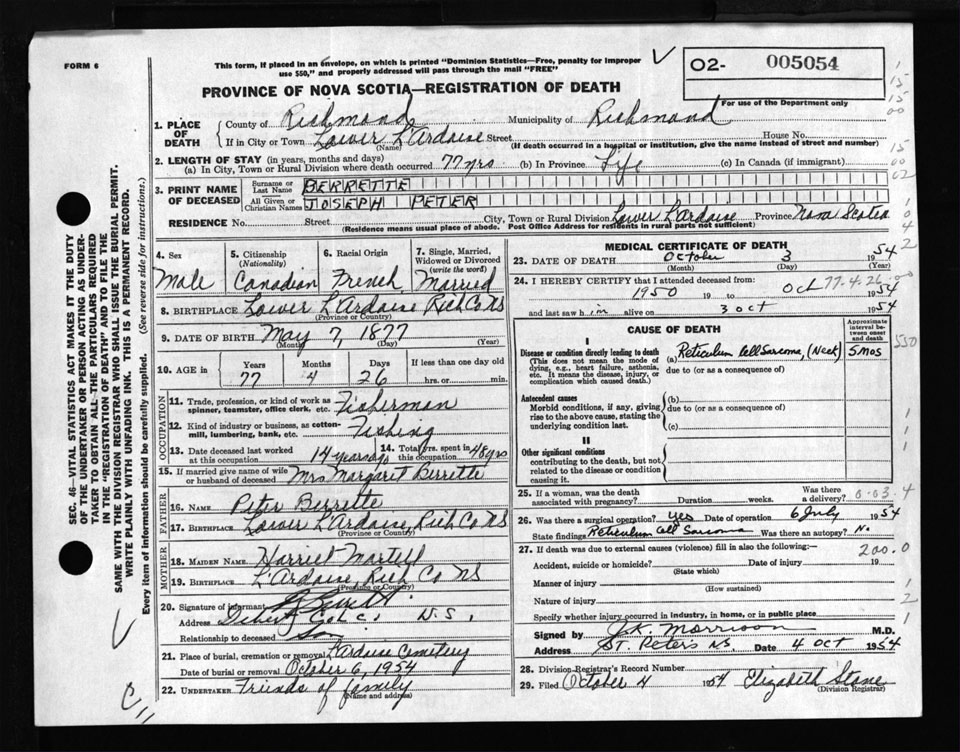 FORM 6
This form, if placed in an envelope, on which is printed "Dominion Statistics—Free, penalty for improper
use $50," and properly addressed will pass through the mail "FREE"
O2- 005054
For use of the Department only
PROVINCE OF NOVA SCOTIA—REGISTRATION OF DEATH
1. PLACE OF DEATH
County of Richmond Municipality of Richmond
If in City or Town Lower L'Ardoise Street House No.
(Name) (If death occurred in a hospital or institution, give the name instead of street and number)
2. LENGTH OF STAY (in years, months and days)
(a) In City, Town or Rural Division where death occurred 77 yrs (b) In Province Life (c) In Canada (if immigrant)
3. PRINT NAME OF DECEASED
Surname or Last Name BERRETTE
All Given or Christian Names JOSEPH PETER
RESIDENCE No. Street City, Town or Rural Division Lower L'Ardoise Province Nova Scotia
(Residence means usual place of abode. Post Office Address for residents in rural parts not sufficient)
4. Sex Male
5. Citizenship (Nationality) Canadian
6. Racial Origin French
7. Single, Married, Widowed or Divorced (write the word) Married
8. BIRTHPLACE Lower L'Ardoise Rich Co NS
(Province or Country)
9. DATE OF BIRTH May 7, 1877
(Month) (Day) (Year)
10. AGE in Years 77 Months 4 Days 26 If less than one day old hrs. or min.
OCCUPATION
11. Trade, profession, or kind of work as spinner, teamster, office clerk, etc. Fisherman
12. Kind of industry or business, as cotton-mill, lumbering, bank, etc. Fishing
13. Date deceased last worked at this occupation 14 years ago
14. Total yrs. spent in this occupation 48 yrs
15. If married give name of wife or husband of deceased Mrs Margaret Berrette
FATHER
16. NAME Peter Berrette
17. BIRTHPLACE Lower L'Ardoise, Rich Co NS
(Province or Country)
MOTHER
18. MAIDEN NAME Harriet Martell
19. BIRTHPLACE L'Ardoise, Rich Co NS
(Province or Country)
20. Signature of informant
Address N.S.
Relationship to deceased Son
21. Place of burial, cremation or removal L'Ardoise Cemetery
Date of burial or removal October 6, 1954
22. UNDERTAKER Friends of family
(Name and address)
MEDICAL CERTIFICATE OF DEATH
23. DATE OF DEATH October 3 1954
(Month) (Day) (Year)
24. I HEREBY CERTIFY that I attended deceased from:
1950 19 to Oct 1954
77.4.26
and last saw him alive on 3 Oct 1954
CAUSE OF DEATH
Approximate interval between onset and death
I
Disease or condition directly leading to death (a) Reticulum Cell Sarcoma, (Neck) 5 mos
(This does not mean the mode of dying, e.g., heart failure, asthenia, etc. It means the disease, injury, or complication which caused death.)
due to (or as a consequence of)
Antecedent causes
Morbid conditions, if any, giving rise to the above cause, stating the underlying condition last.
(b)
due to (or as a consequence of)
(c)
II
Other significant conditions
contributing to the death, but not related to the disease or condition causing it.
25. If a woman, was the death associated with pregnancy? Duration weeks. Was there a delivery?
26. Was there a surgical operation? yes Date of operation 6 July 1954
State findings Reticulum Cell Sarcoma Was there an autopsy? No
27. If death was due to external causes (violence) fill in also the following:—
200.0
Accident, suicide or homicide? Date of injury 19
(State which)
Manner of injury
(How sustained)
Nature of injury
Specify whether injury occurred in industry, in home, or in public place
Signed by J.K. Morrison M.D.
Address St. Peters N.S. Date 4 Oct 1954
28. Division Registrar's Record Number
29. Filed October 4 1954 Elizabeth Stone
(Division Registrar)
SEC. 46—VITAL STATISTICS ACT MAKES IT THE DUTY
OF THE UNDERTAKER OR PERSON ACTING AS UNDER-
TAKER TO OBTAIN ALL THE PARTICULARS REQUIRED
IN THE "REGISTRATION OF DEATH" AND TO FILE THE
SAME WITH THE DIVISION REGISTRAR WHO SHALL ISSUE THE BURIAL PERMIT.
WRITE PLAINLY WITH UNFADING INK. THIS IS A PERMANENT RECORD.
Every item of information should be carefully supplied. (See reverse side for instructions.)